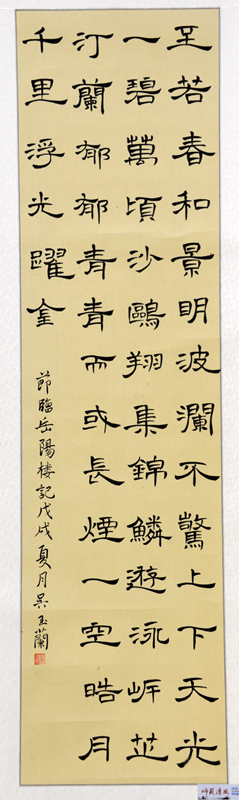 至若春和景明波瀾不驚上下天光
一碧萬頃沙鷗翔集錦鱗遊泳岸芷
汀蘭郁郁青青而或長煙一空晧月
千里浮光躍金
節臨岳陽楼記戊戌夏月吴玉蘭